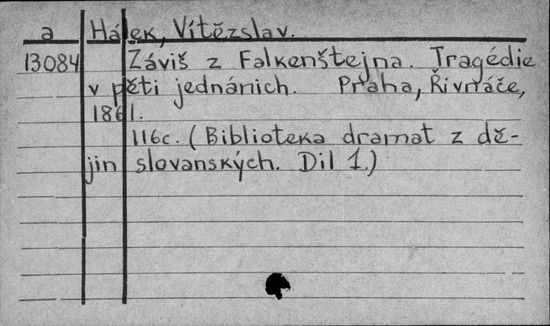 a Hálek, Vítězslav.
13084 Záviš z Falkenštejna. Tragédie
v pěti jednáních. Praha, Řivnáče,
1861.
116c. (Biblioteka dramat z dě-
jin slovanských. Díl 1.)